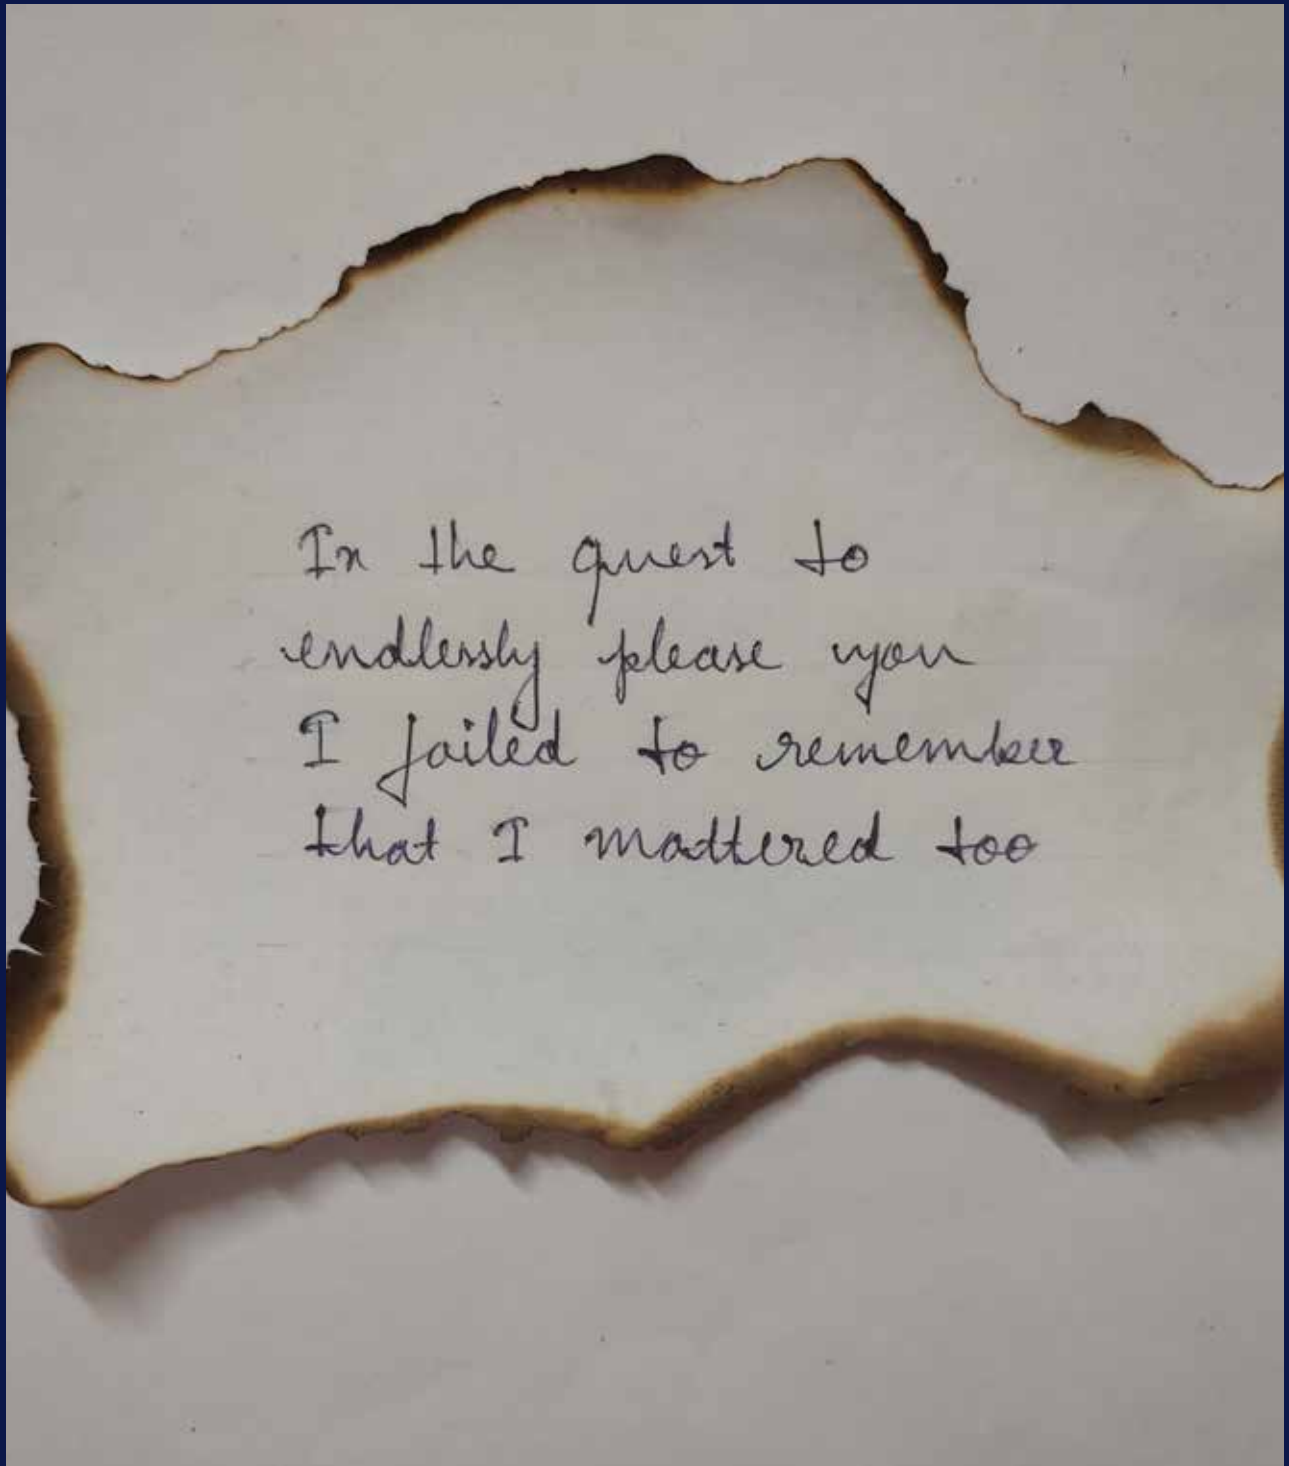 In the quest to
endlessly please you
I failed to remember
that I mattered too